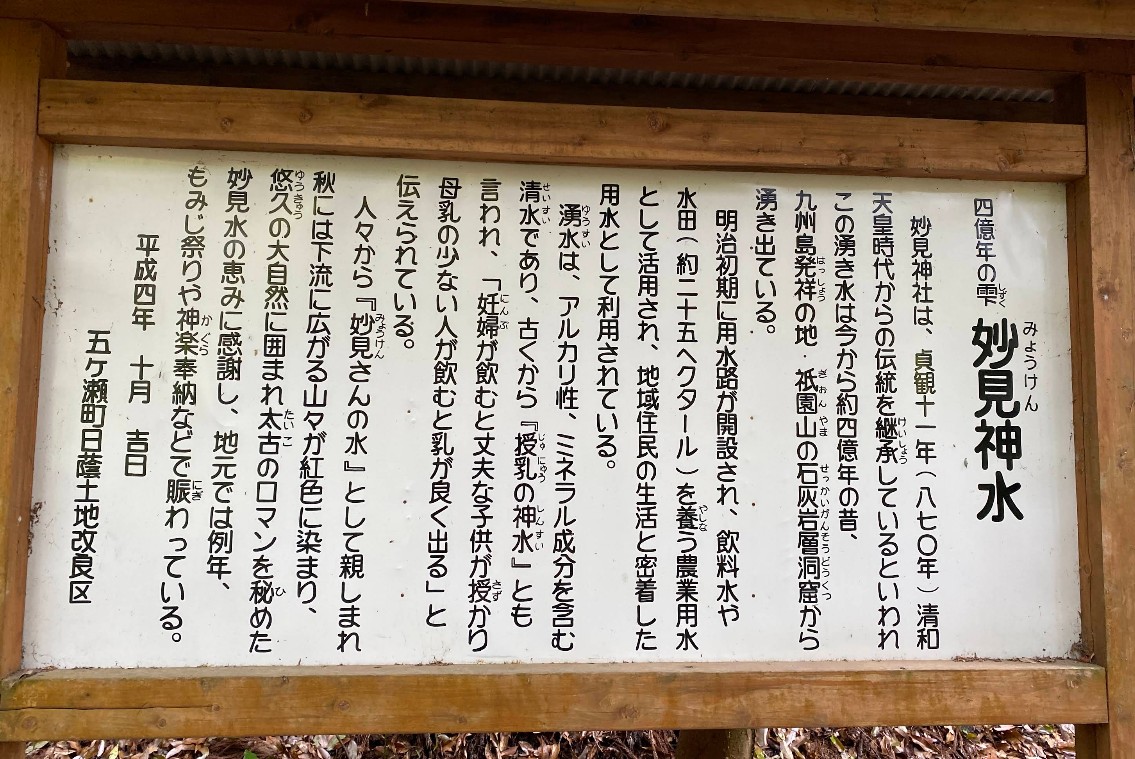 四億年の雫 妙見神水
妙見神社は、貞観十一年(八七〇年)清和
天皇時代からの伝統を継承しているといわれ
この湧き水は今から約四億年の昔、
九州島発祥の地・祇園山の石灰岩層洞窟から
湧き出ている。
明治初期に用水路が開設され、飲料水や
水田(約二十五ヘクタール)を養う農業用水
として活用され、地域住民の生活と密着した
用水として利用されている。
湧水は、アルカリ性、ミネラル成分を含む
清水であり、古くから『授乳の神水』とも
言われ、「妊婦が飲むと丈夫な子供が授かり
母乳の少ない人が飲むと乳が良く出る」と
伝えられている。
人々から『妙見さんの水』として親しまれ
秋には下流に広がる山々が紅色に染まり、
悠久の大自然に囲まれ太古のロマンを秘めた
妙見水の恵みに感謝し、地元では例年、
もみじ祭りや神楽奉納などで賑わっている。
平成四年 十月 吉日
五ケ瀬町日蔭土地改良区